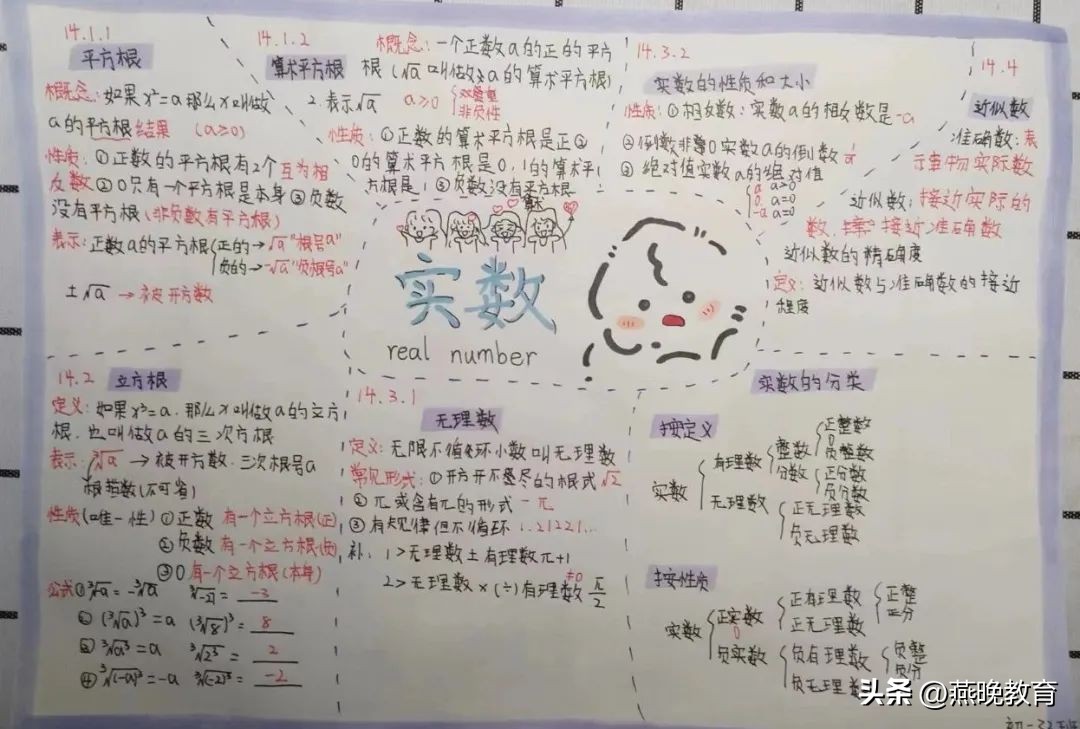 14.1.1
平方根
概念:如果x²=a那么x叫做
a的平方根 结果 (a≥0)
性质:①正数的平方根有2个互为相
反数②0只有一个平方根是本身③负数
没有平方根(非负数有平方根)
表示:正数a的平方根{正的→√a"根号a"
负的→-√a"负根号a"
±√a → 被开方数
14.1.2
算术平方根
概念:一个正数a的正的平方
根(√a叫做a的算术平方根)
2.表示√a a≥0 {双重
非负性
性质:①正数的算术平方根是正②
0的算术平方根是0,1的算术平
方根是1③负数没有平方根
算术
14.3.2
实数的性质和大小
性质:①相反数:实数a的相反数是-a
②倒数非零0实数a的倒数
③绝对值实数a的绝对值
{a a>0
0 a=0
-a a=0
14.4
近似数
准确数:表
示事物实际数
近似数:接近实际的
数,接近准确数
近似数的精确度
定义:近似数与准确数的接近
程度
实数
real number
14.2 立方根
定义:如果x³=a,那么x叫做a的立方
根,也叫做a的三次方根
表示:³√a → 被开方数,三次根号a
根指数(不可省)
性质(唯一性)①正数 有一个立方根(正)
②负数 有一个立方根(负)
③0有一个立方根(本身)
公式①³√a=-³√a = -3
②(³√a)³=a (³√8)³= 8
③³√a³=a ³√2³= 2
④³√(-a)³=-a ³√(-2)³= -2
14.3.1
无理数
定义:无限不循环小数叫无理数
常见形式:①开方开不尽的根式√2
②π或含有π的形式-π
③有规律但不循环1.21221...
补:1>无理数±有理数π+1
2>无理数×(÷)有理数≠0 π/2
实数的分类
按定义
实数{有理数{整数{正整数
0
负整数
分数{正分数
负分数
无理数{正无理数
负无理数
按性质
实数{正实数{正有理数{正整
正分
正无理数
0
负实数{负有理数{负整
负分
负无理数
头条 @燕晚教育